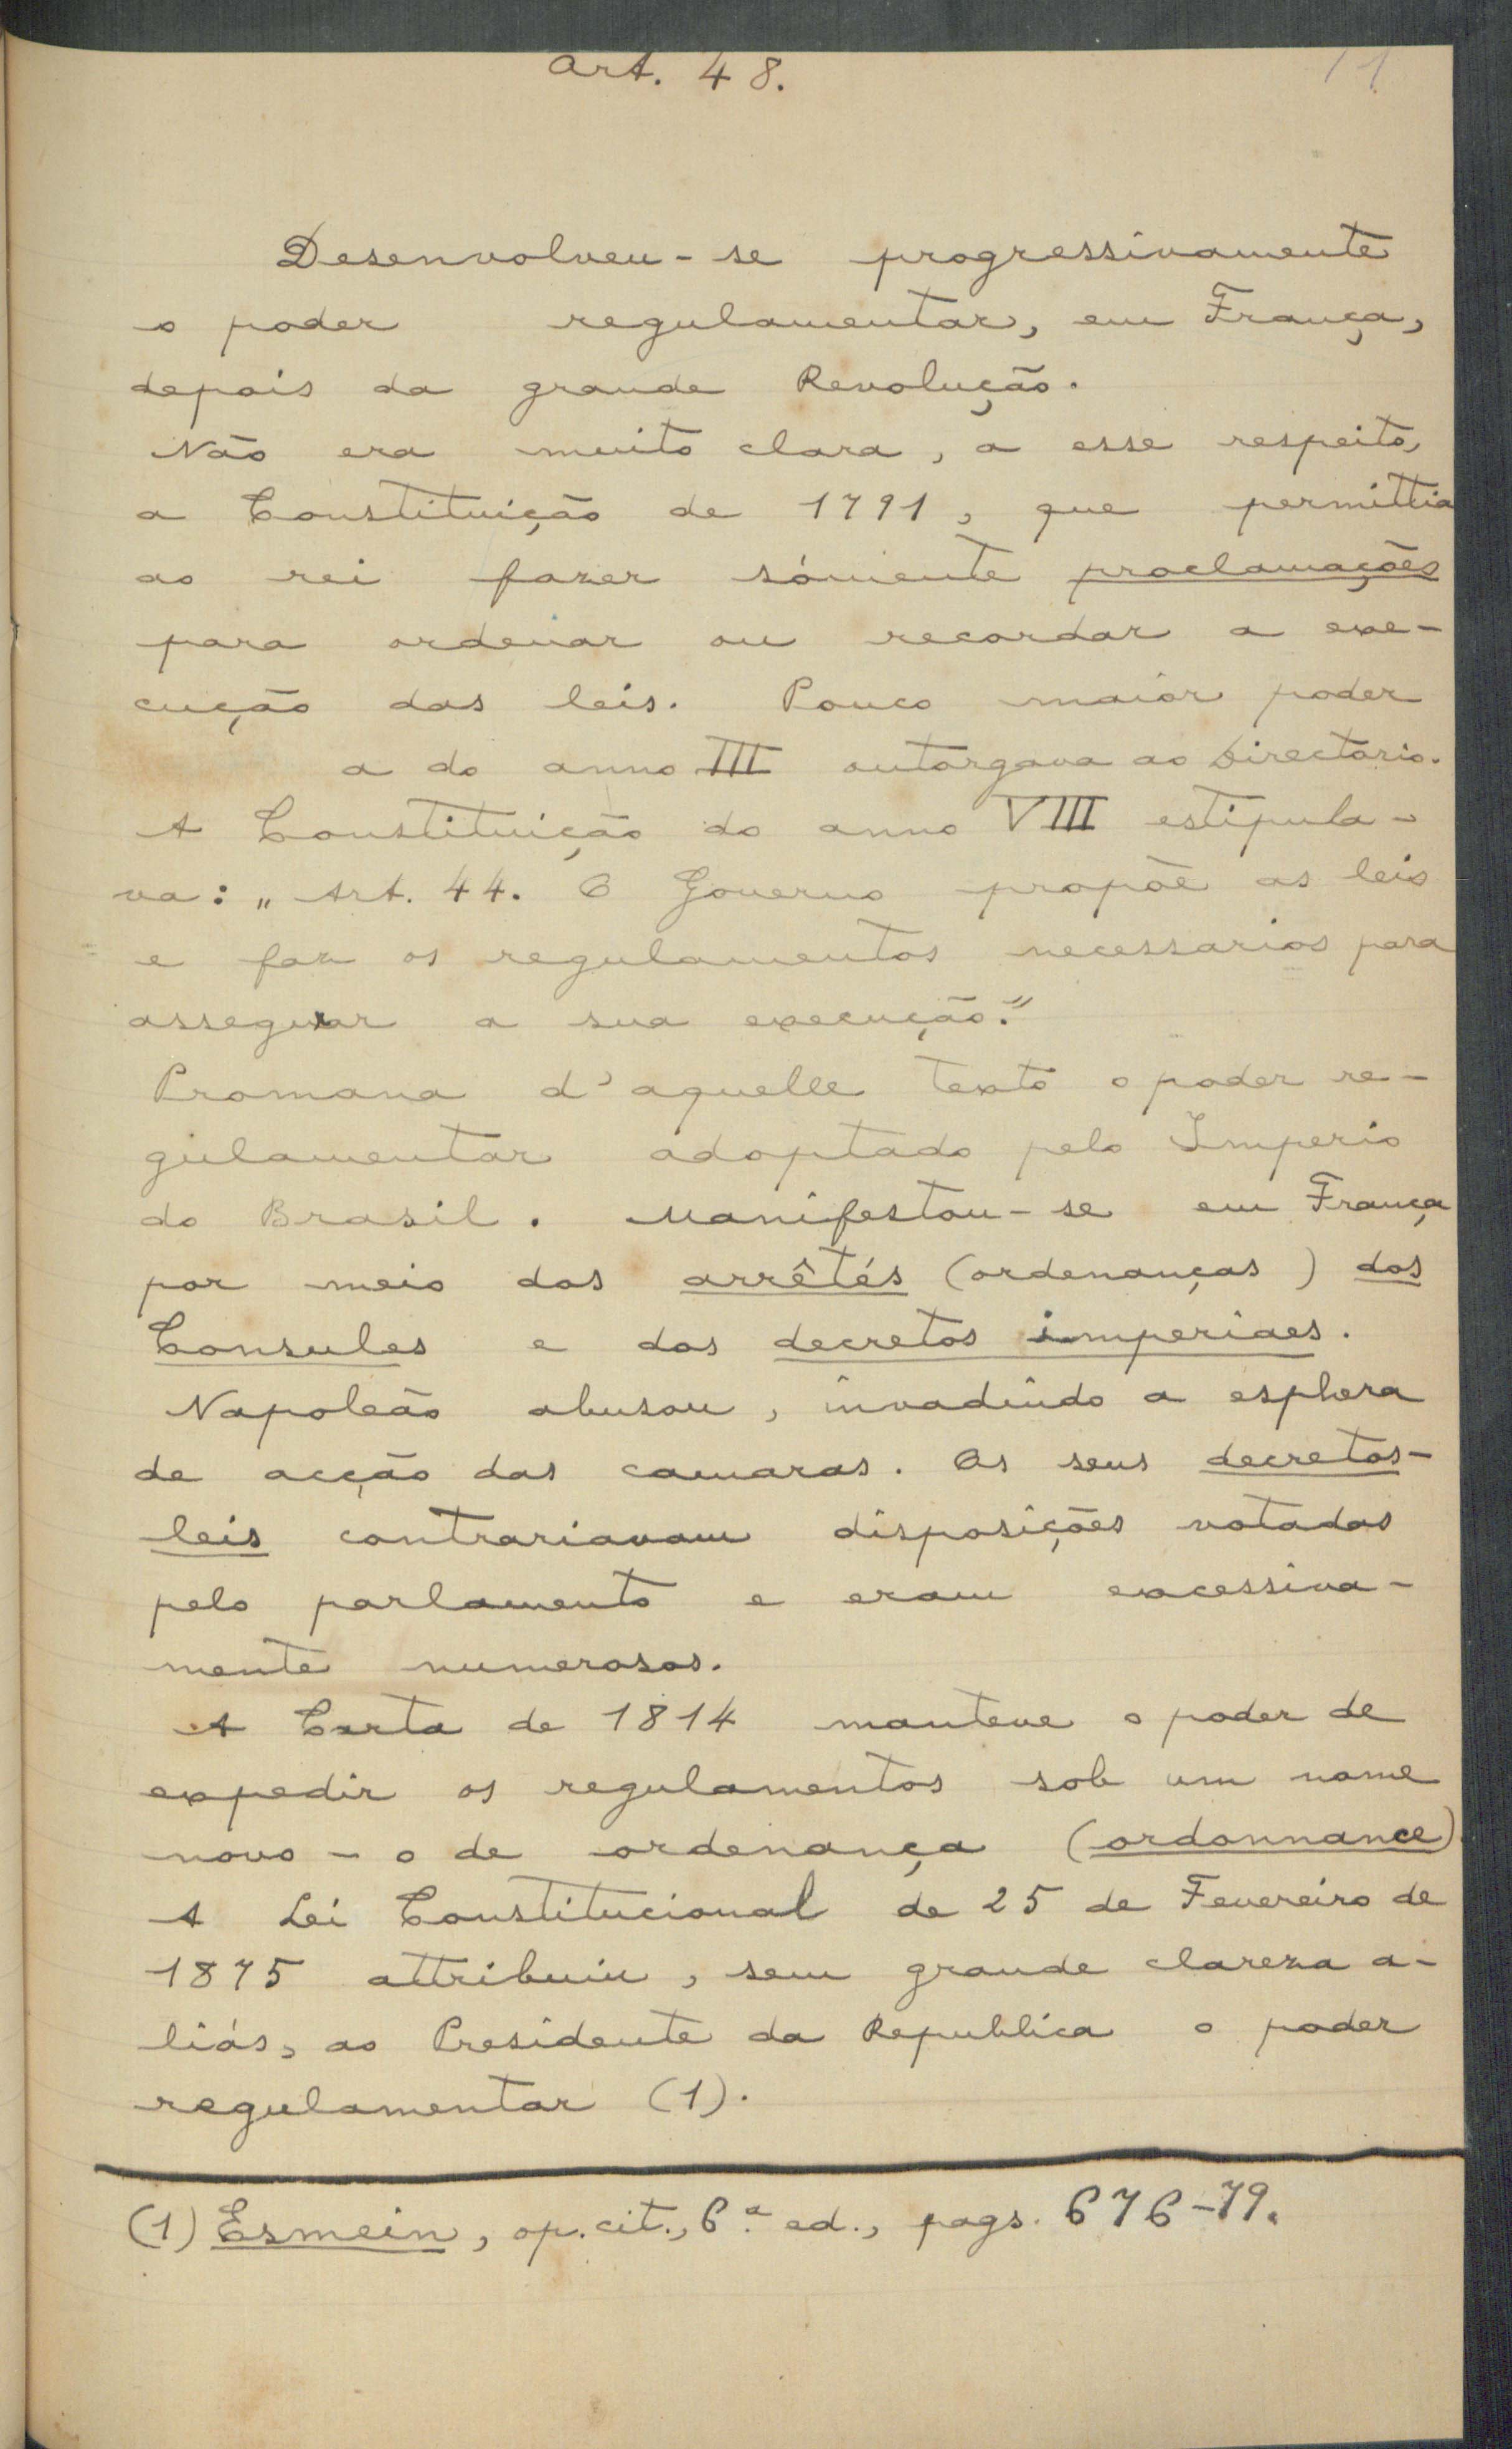 Art. 48.
Desenvolveu-se progressivamente
o poder regulamentar, em França,
depois da grande Revolução.
Não era muito clara, a esse respeito,
a Constituição de 1791, que permittia
ao rei fazer sómente proclamações
para ordenar ou recordar a exe-
cução das leis. Pouco maior poder
a do anno III outorgava ao Directorio.
A Constituição do anno VIII estipula-
va: „Art. 44. O Governo propõe as leis
e faz os regulamentos necessarios para
assegurar a sua execução."
Promana d'aquelle texto o poder re-
gulamentar adoptado pelo Imperio
do Brasil. Manifestou-se em França
por meio dos arrêtés (ordenanças) dos
Consules e dos decretos imperiaes.
Napoleão abusou, invadindo a esphera
de acção das camaras. Os seus decretos-
leis contrariavam disposições votadas
pelo parlamento e eram excessiva-
mente numerosos.
A Carta de 1814 manteve o poder de
expedir os regulamentos sob um nome
novo - o de ordenança (ordonnance)
A Lei Constitucional de 25 de Fevereiro de
1875 attribuiu, sem grande clareza a-
liás, ao Presidente da Republica o poder
regulamentar (1).
(1) Esmein, op. cit., 6.ª ed., pags. 676-79.